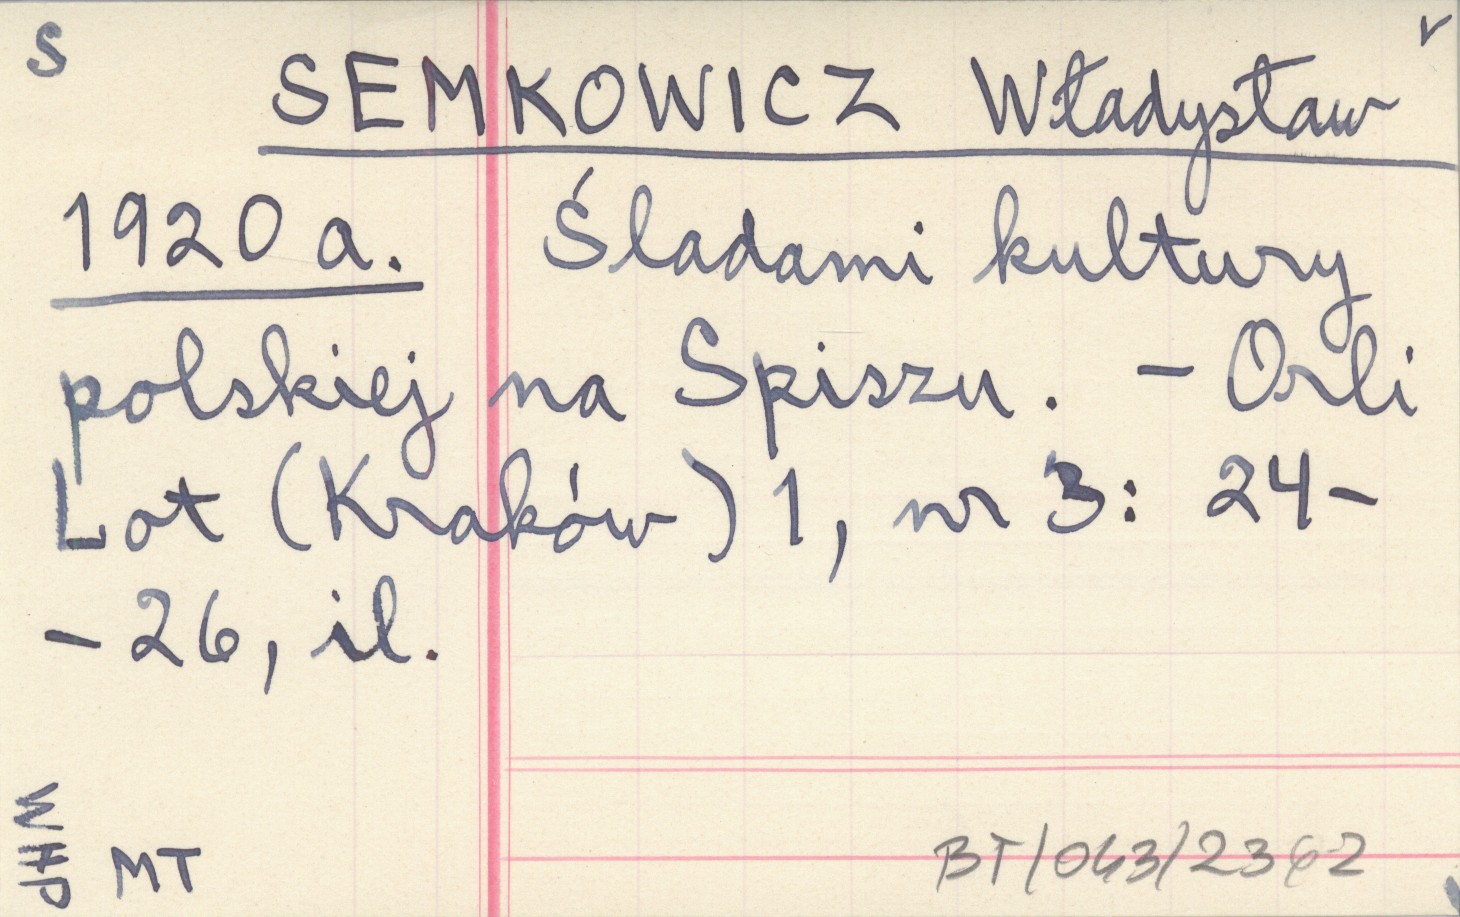 S
v
SEMKOWICZ Władysław
1920 a. Śladami kultury
polskiej na Spiszu. - Orli
Lot (Kraków) 1, nr 3: 24-
- 26, il.
WHP
MT
BT/043/2362